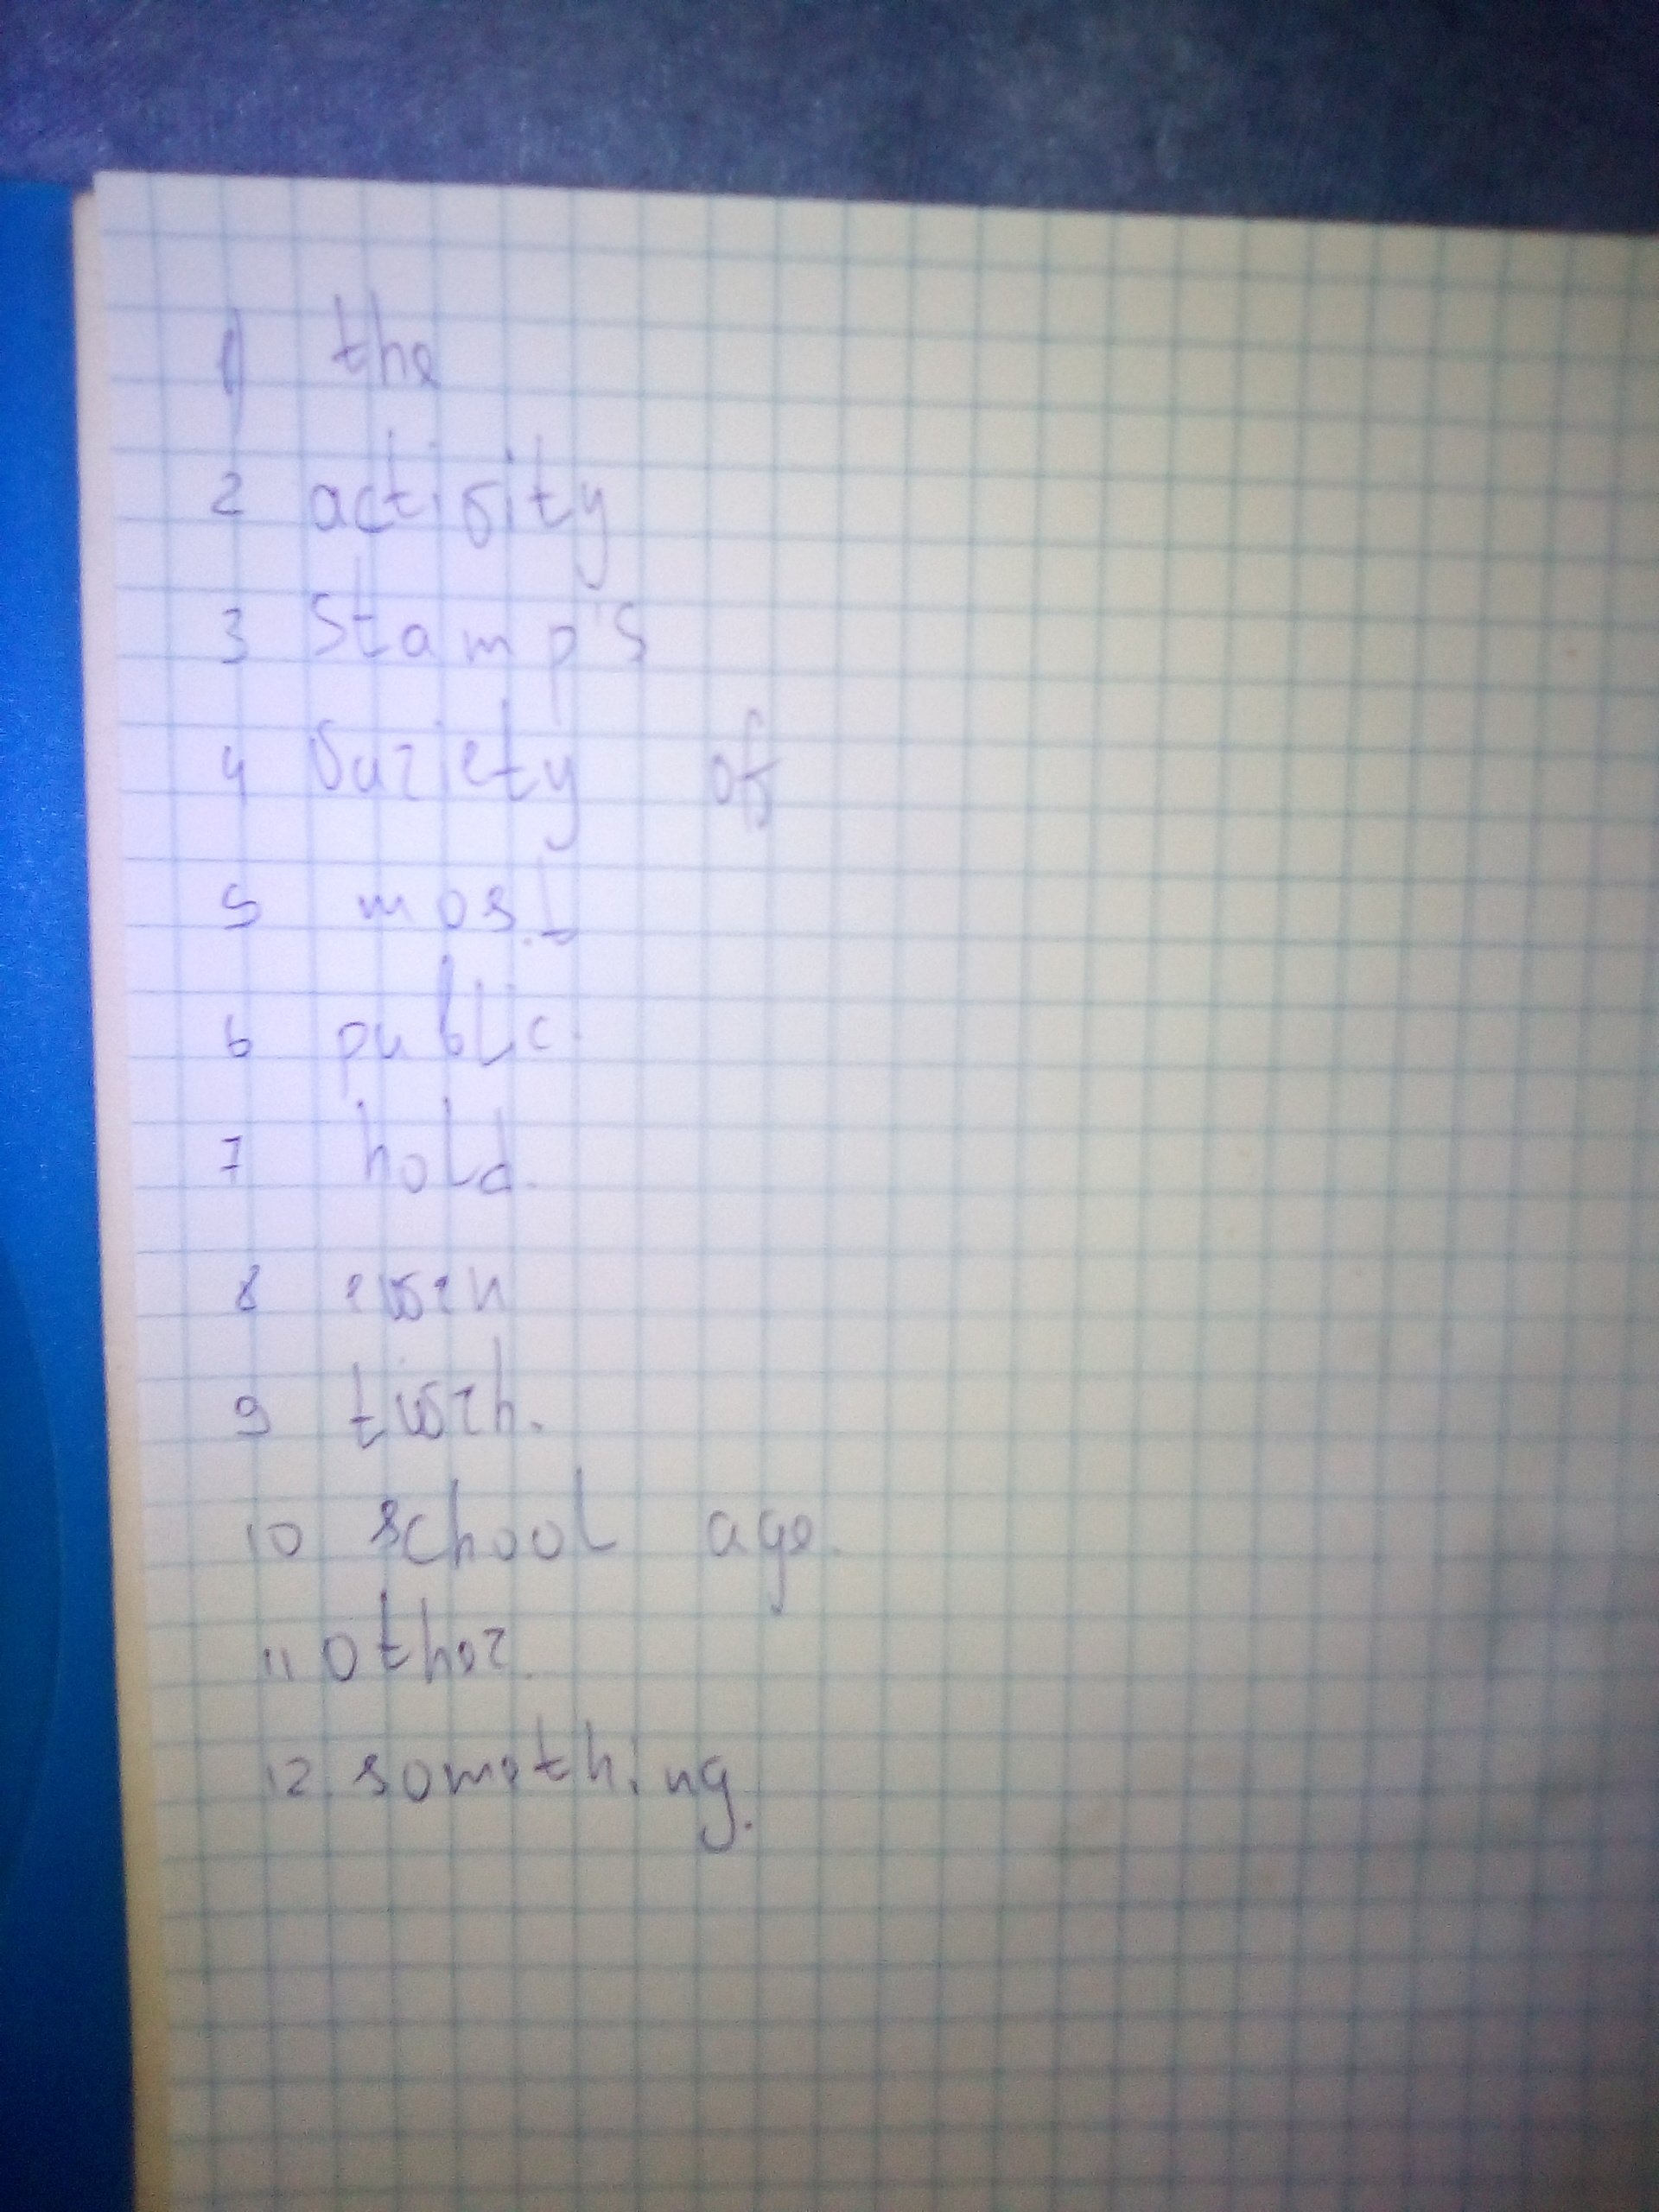 1 the
2 activity
3 Stamp's
4 Variety of
5 most
6 public.
7 hold.
8 even
9
10 school age.
11 other.
12. something.